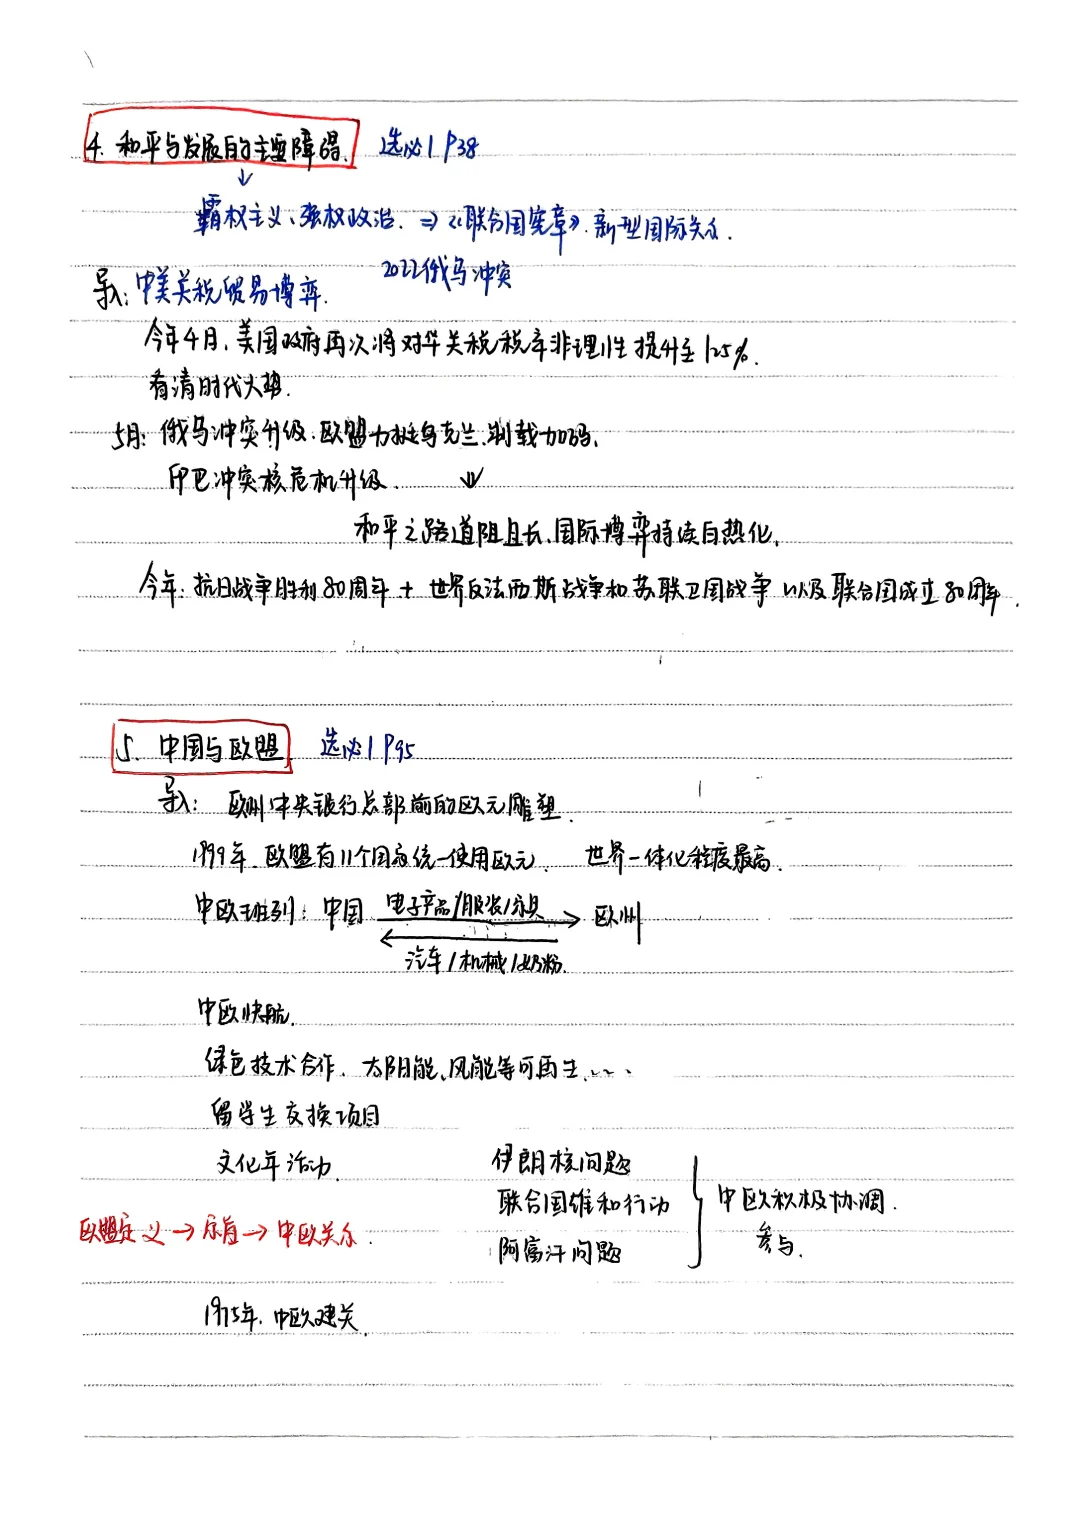 4. 和平与发展的主要障碍. 选必1 P38
↓
霸权主义、强权政治. ⇒《联合国宪章》. 新型国际关系.
2022俄乌冲突
导入: 中美关税贸易博弈.
今年4月, 美国政府再次将对华关税税率非理性提升至125%.
看清时代大势.
5月: 俄乌冲突升级. 欧盟力挺乌克兰. 制裁加码.
印巴冲突核危机升级. ⇓
和平之路道阻且长, 国际博弈持续白热化.
今年: 抗日战争胜利80周年 + 世界反法西斯战争和苏联卫国战争 以及联合国成立80周年.
5. 中国与欧盟 选必1 P95
导入: 欧洲中央银行总部前的欧元雕塑.
1999年. 欧盟有11个国家统一使用欧元. 世界一体化程度最高.
中欧班列: 中国 电子产品/服装/家具 → 欧洲
← 汽车/机械/奶粉.
中欧快航.
绿色技术合作. 太阳能、风能等可再生....
留学生交换项目
文化年活动.
伊朗核问题
联合国维和行动 } 中欧积极协调.
阿富汗问题 参与.
欧盟定义→宗旨→中欧关系.
1975年. 中欧建关.